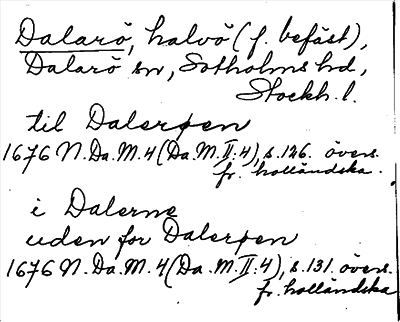 Dalarö, halvö (f. befäst),
Dalarö sn, Sotholms hd,
Stockh. l.
til Dalerøen
1676 N. Da. M. 4 (Da. M. II: 4), s. 126. övers.
fr. holländska.
i Dalerne
uden for Dalerøen
1676 N. Da. M. 4 (Da. M. II: 4), s. 131. övers.
fr. holländska